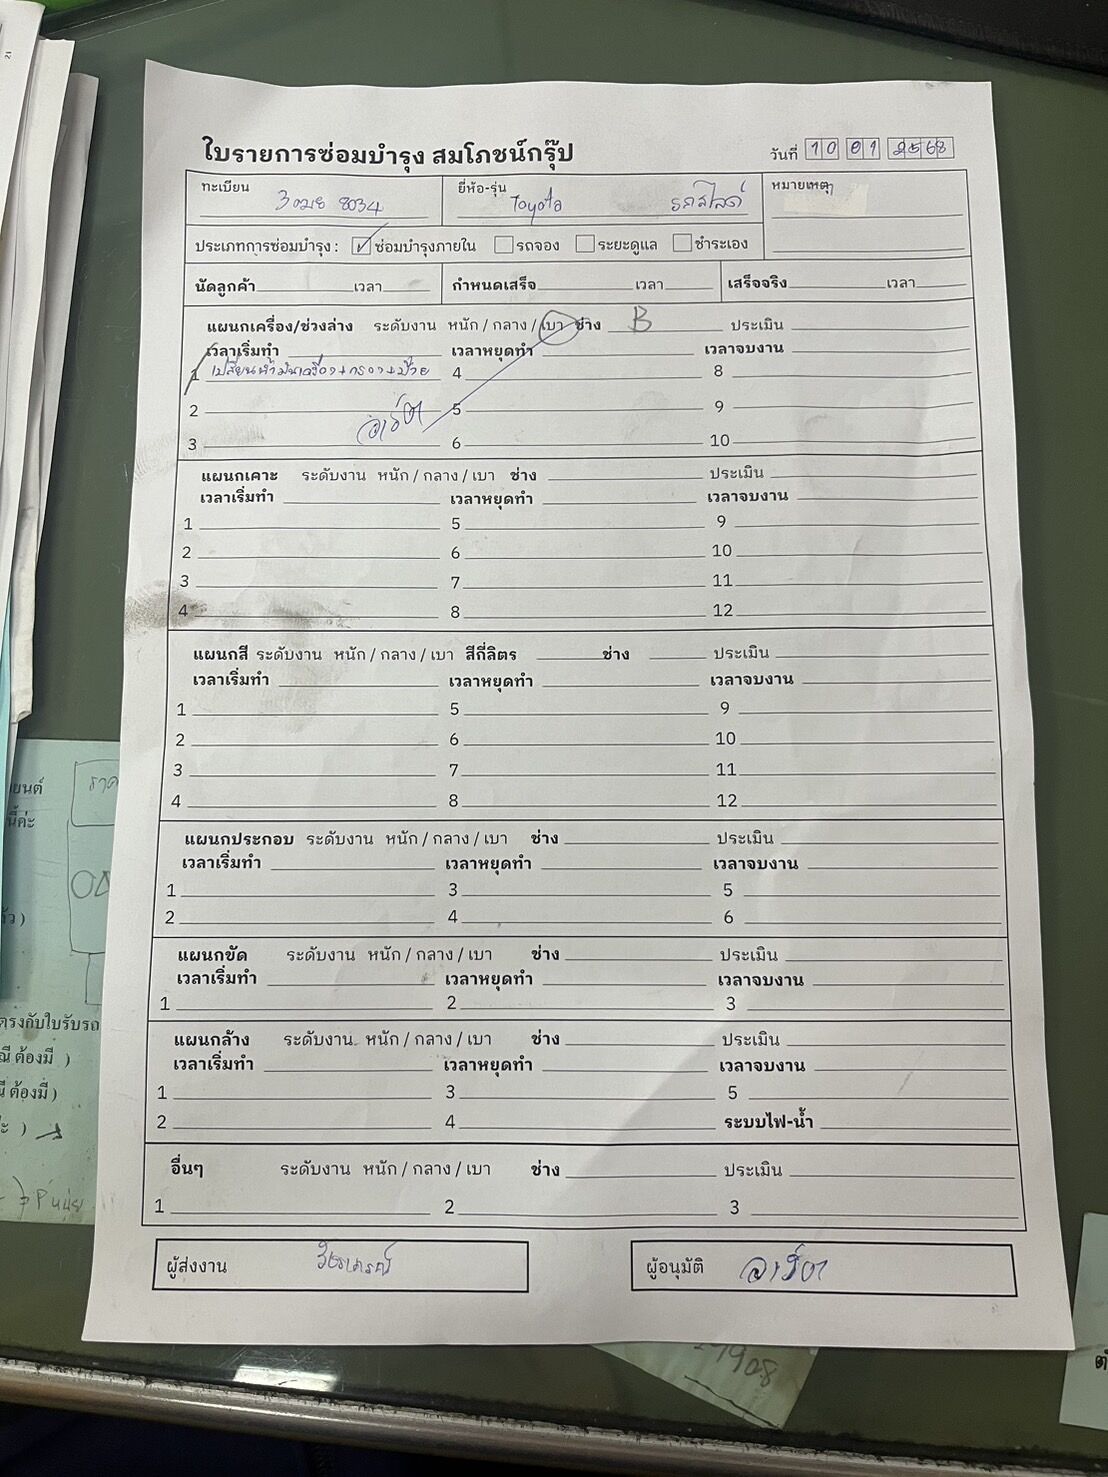 ใบรายการซ่อมบำรุง สมโภชน์กรุ๊ป
วันที่ 10 01 2568
ทะเบียน 3ฒข 8034 ยี่ห้อ-รุ่น Toyota รถสไลด์ หมายเหตุ
ประเภทการซ่อมบำรุง : ซ่อมบำรุงภายใน รถจอง ระยะดูแล ชำระเอง
นัดลูกค้า เวลา กำหนดเสร็จ เวลา เสร็จจริง เวลา
แผนกเครื่อง/ช่วงล่าง ระดับงาน หนัก / กลาง / เบา ช่าง B ประเมิน
เวลาเริ่มทำ เวลาหยุดทำ เวลาจบงาน
1 เปลี่ยนน้ำมันเครื่อง+กรอง+ป้าย 4 8
2 5 9
3 6 10
แผนกเคาะ ระดับงาน หนัก / กลาง / เบา ช่าง ประเมิน
เวลาเริ่มทำ เวลาหยุดทำ เวลาจบงาน
1 5 9
2 6 10
3 7 11
4 8 12
แผนกสี ระดับงาน หนัก / กลาง / เบา สีกี่ลิตร ช่าง ประเมิน
เวลาเริ่มทำ เวลาหยุดทำ เวลาจบงาน
1 5 9
2 6 10
3 7 11
4 8 12
แผนกประกอบ ระดับงาน หนัก / กลาง / เบา ช่าง ประเมิน
เวลาเริ่มทำ เวลาหยุดทำ เวลาจบงาน
1 3 5
2 4 6
แผนกขัด ระดับงาน หนัก / กลาง / เบา ช่าง ประเมิน
เวลาเริ่มทำ เวลาหยุดทำ เวลาจบงาน
1 2 3
แผนกล้าง ระดับงาน หนัก / กลาง / เบา ช่าง ประเมิน
เวลาเริ่มทำ เวลาหยุดทำ เวลาจบงาน
1 3 5
2 4 ระบบไฟ-น้ำ
อื่นๆ ระดับงาน หนัก / กลาง / เบา ช่าง ประเมิน
1 2 3
ผู้ส่งงาน ผู้อนุมัติ
ตรงกับใบรับรถ
ณี ต้องมี )
ณี ต้องมี )